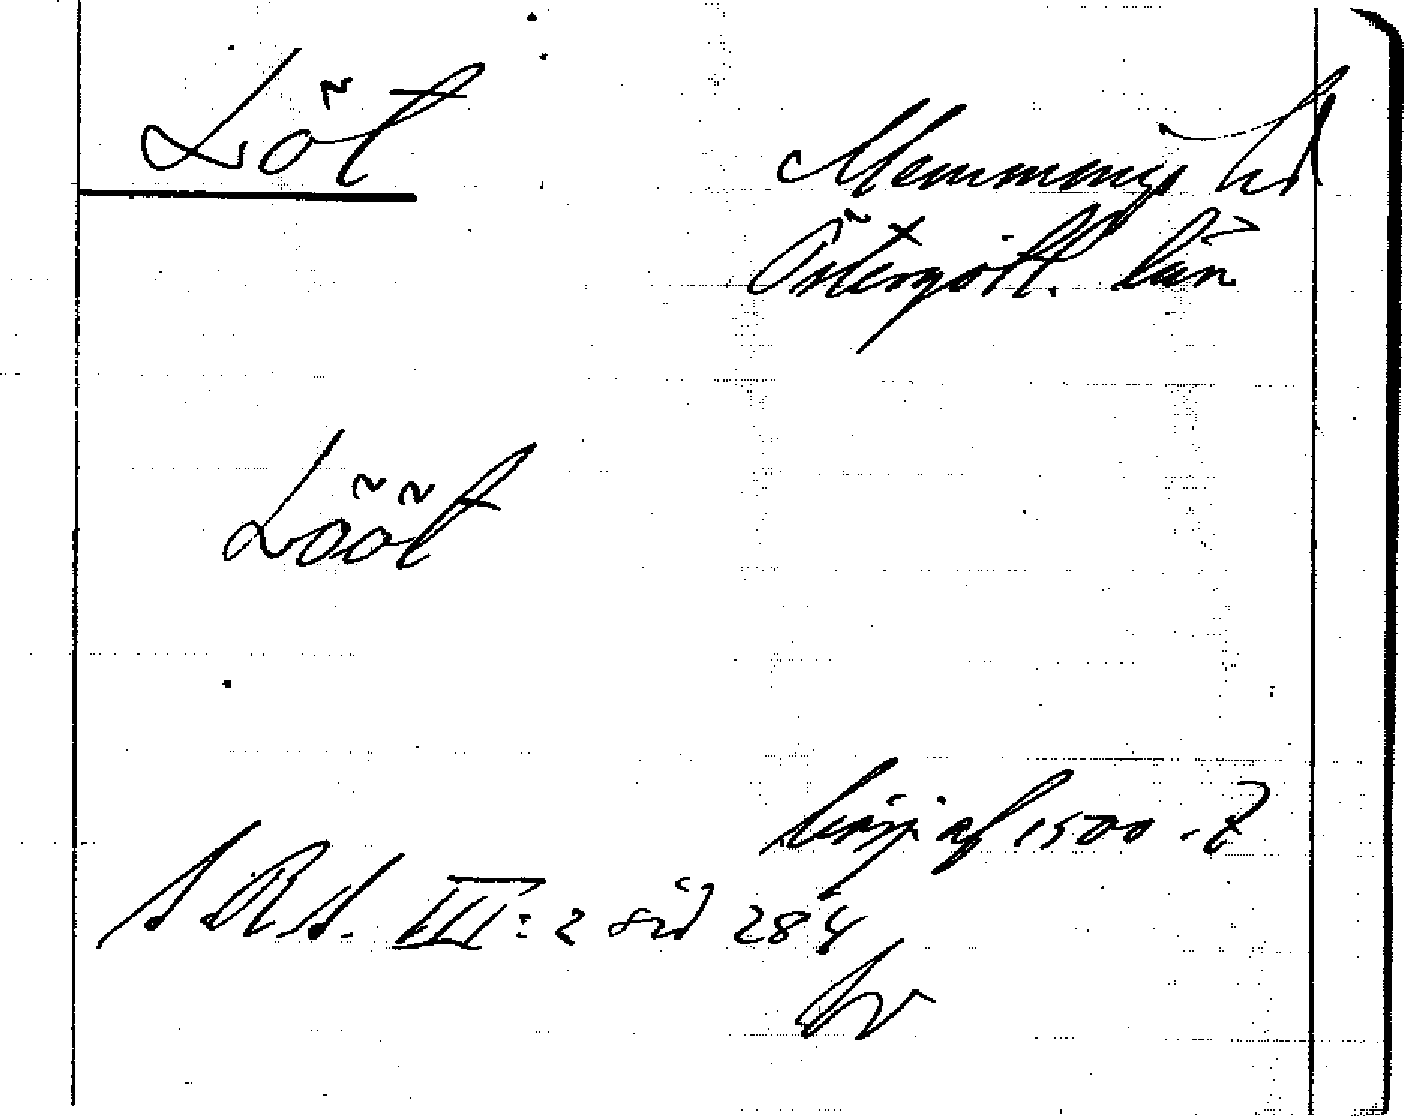 Löt
Memmings hd
Östergötl. län
Lööt
börj. af 1500-t
S R S. III:2 sid 284